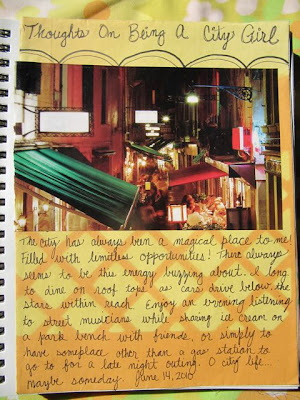 Thoughts On Being A City Girl
The city has always been a magical place to me!
Filled with limitless opportunities! There always
seems to be this energy buzzing about. I long
to dine on roof tops as cars drive below, the
stars within reach. Enjoy an evening listening
to street musicians while sharing ice cream on
a park bench with friends, or simply to
have someplace other than a gas station to
go to for a late night outing. O city life...
maybe someday. June 14, 2010